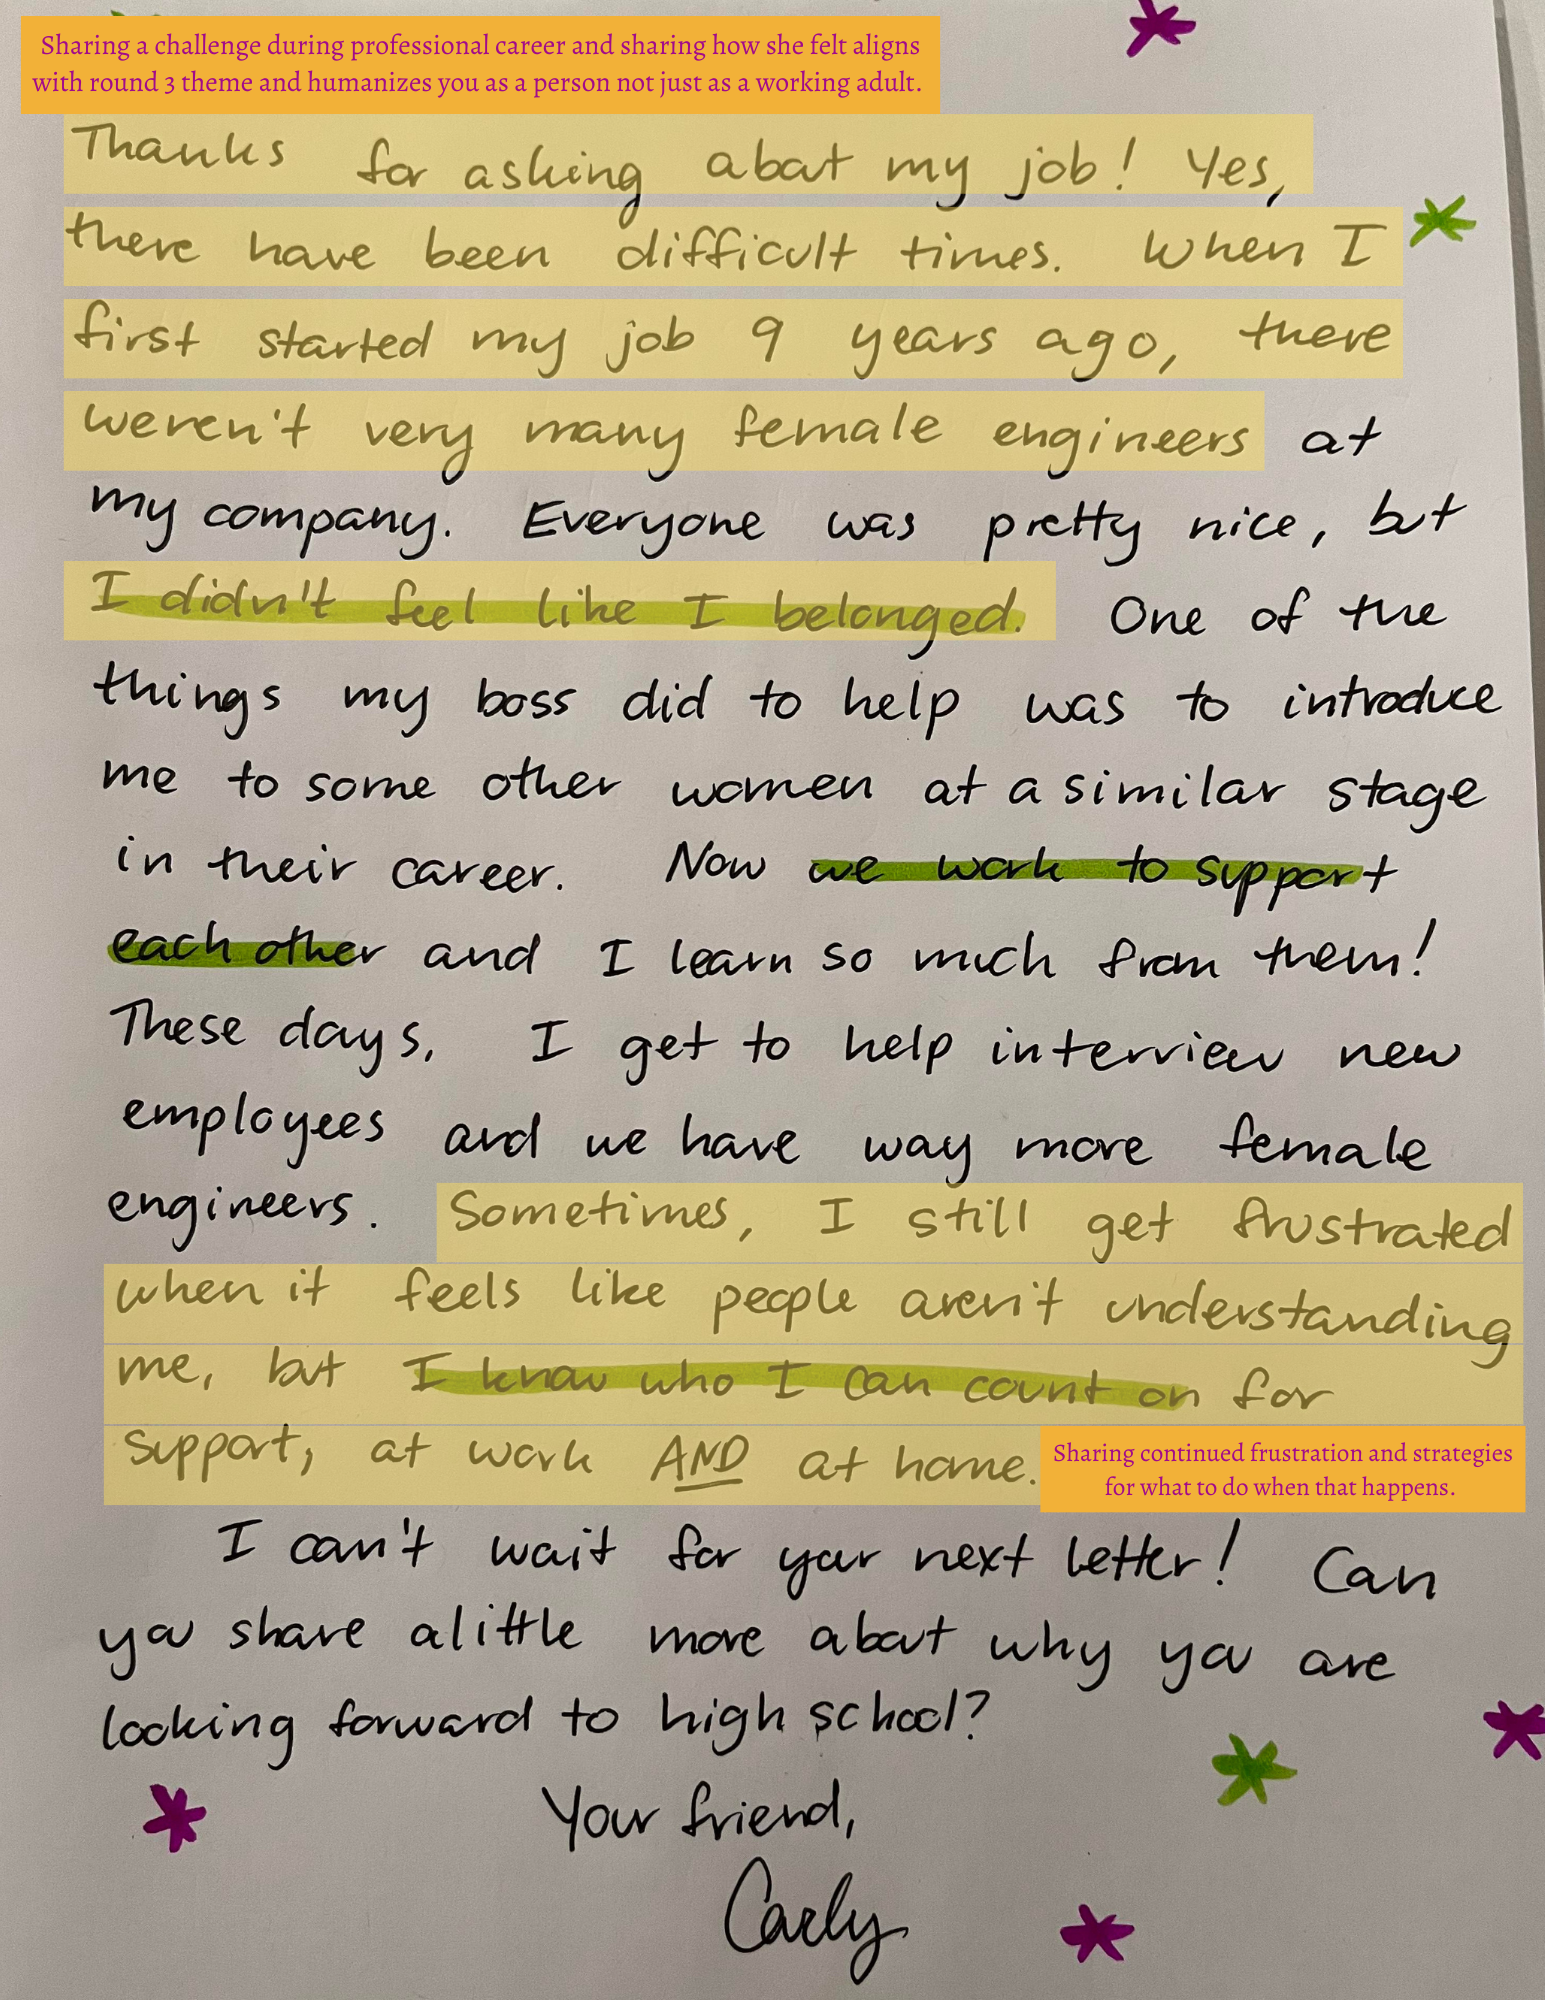 Sharing a challenge during professional career and sharing how she felt aligns
with round 3 theme and humanizes you as a person not just as a working adult.
Thanks for asking about my job! Yes,
there have been difficult times. When I
first started my job 9 years ago, there
weren't very many female engineers at
my company. Everyone was pretty nice, but
I didn't feel like I belonged. One of the
things my boss did to help was to introduce
me to some other women at a similar stage
in their career. Now we work to support
each other and I learn so much from them!
These days, I get to help interview new
employees and we have way more female
engineers. Sometimes, I still get frustrated
when it feels like people aren't understanding
me, but I know who I can count on for
support, at work AND at home.
Sharing continued frustration and strategies
for what to do when that happens.
I can't wait for your next letter! Can
you share a little more about why you are
looking forward to high school?
Your friend,
Carly